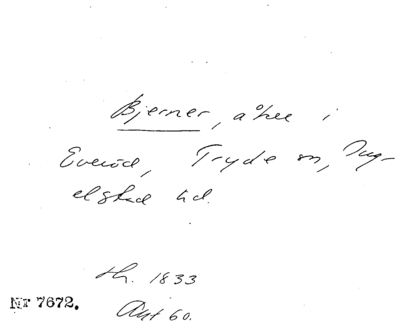 Bjerner, åker i
Everöd, Tryde sn, Ing-
elstad hd.
th. 1833
Akt 60.
Nr 7672.